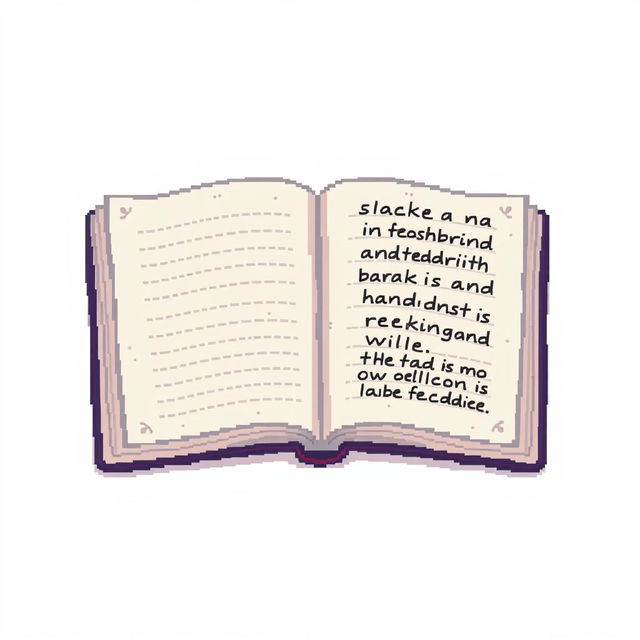 slacke a na
in feoshbrind
andteddriith
barak is and
handidnst is
reekingand
wille.
tHe tad is mo
ow oelllcon is
laube fecddiee.